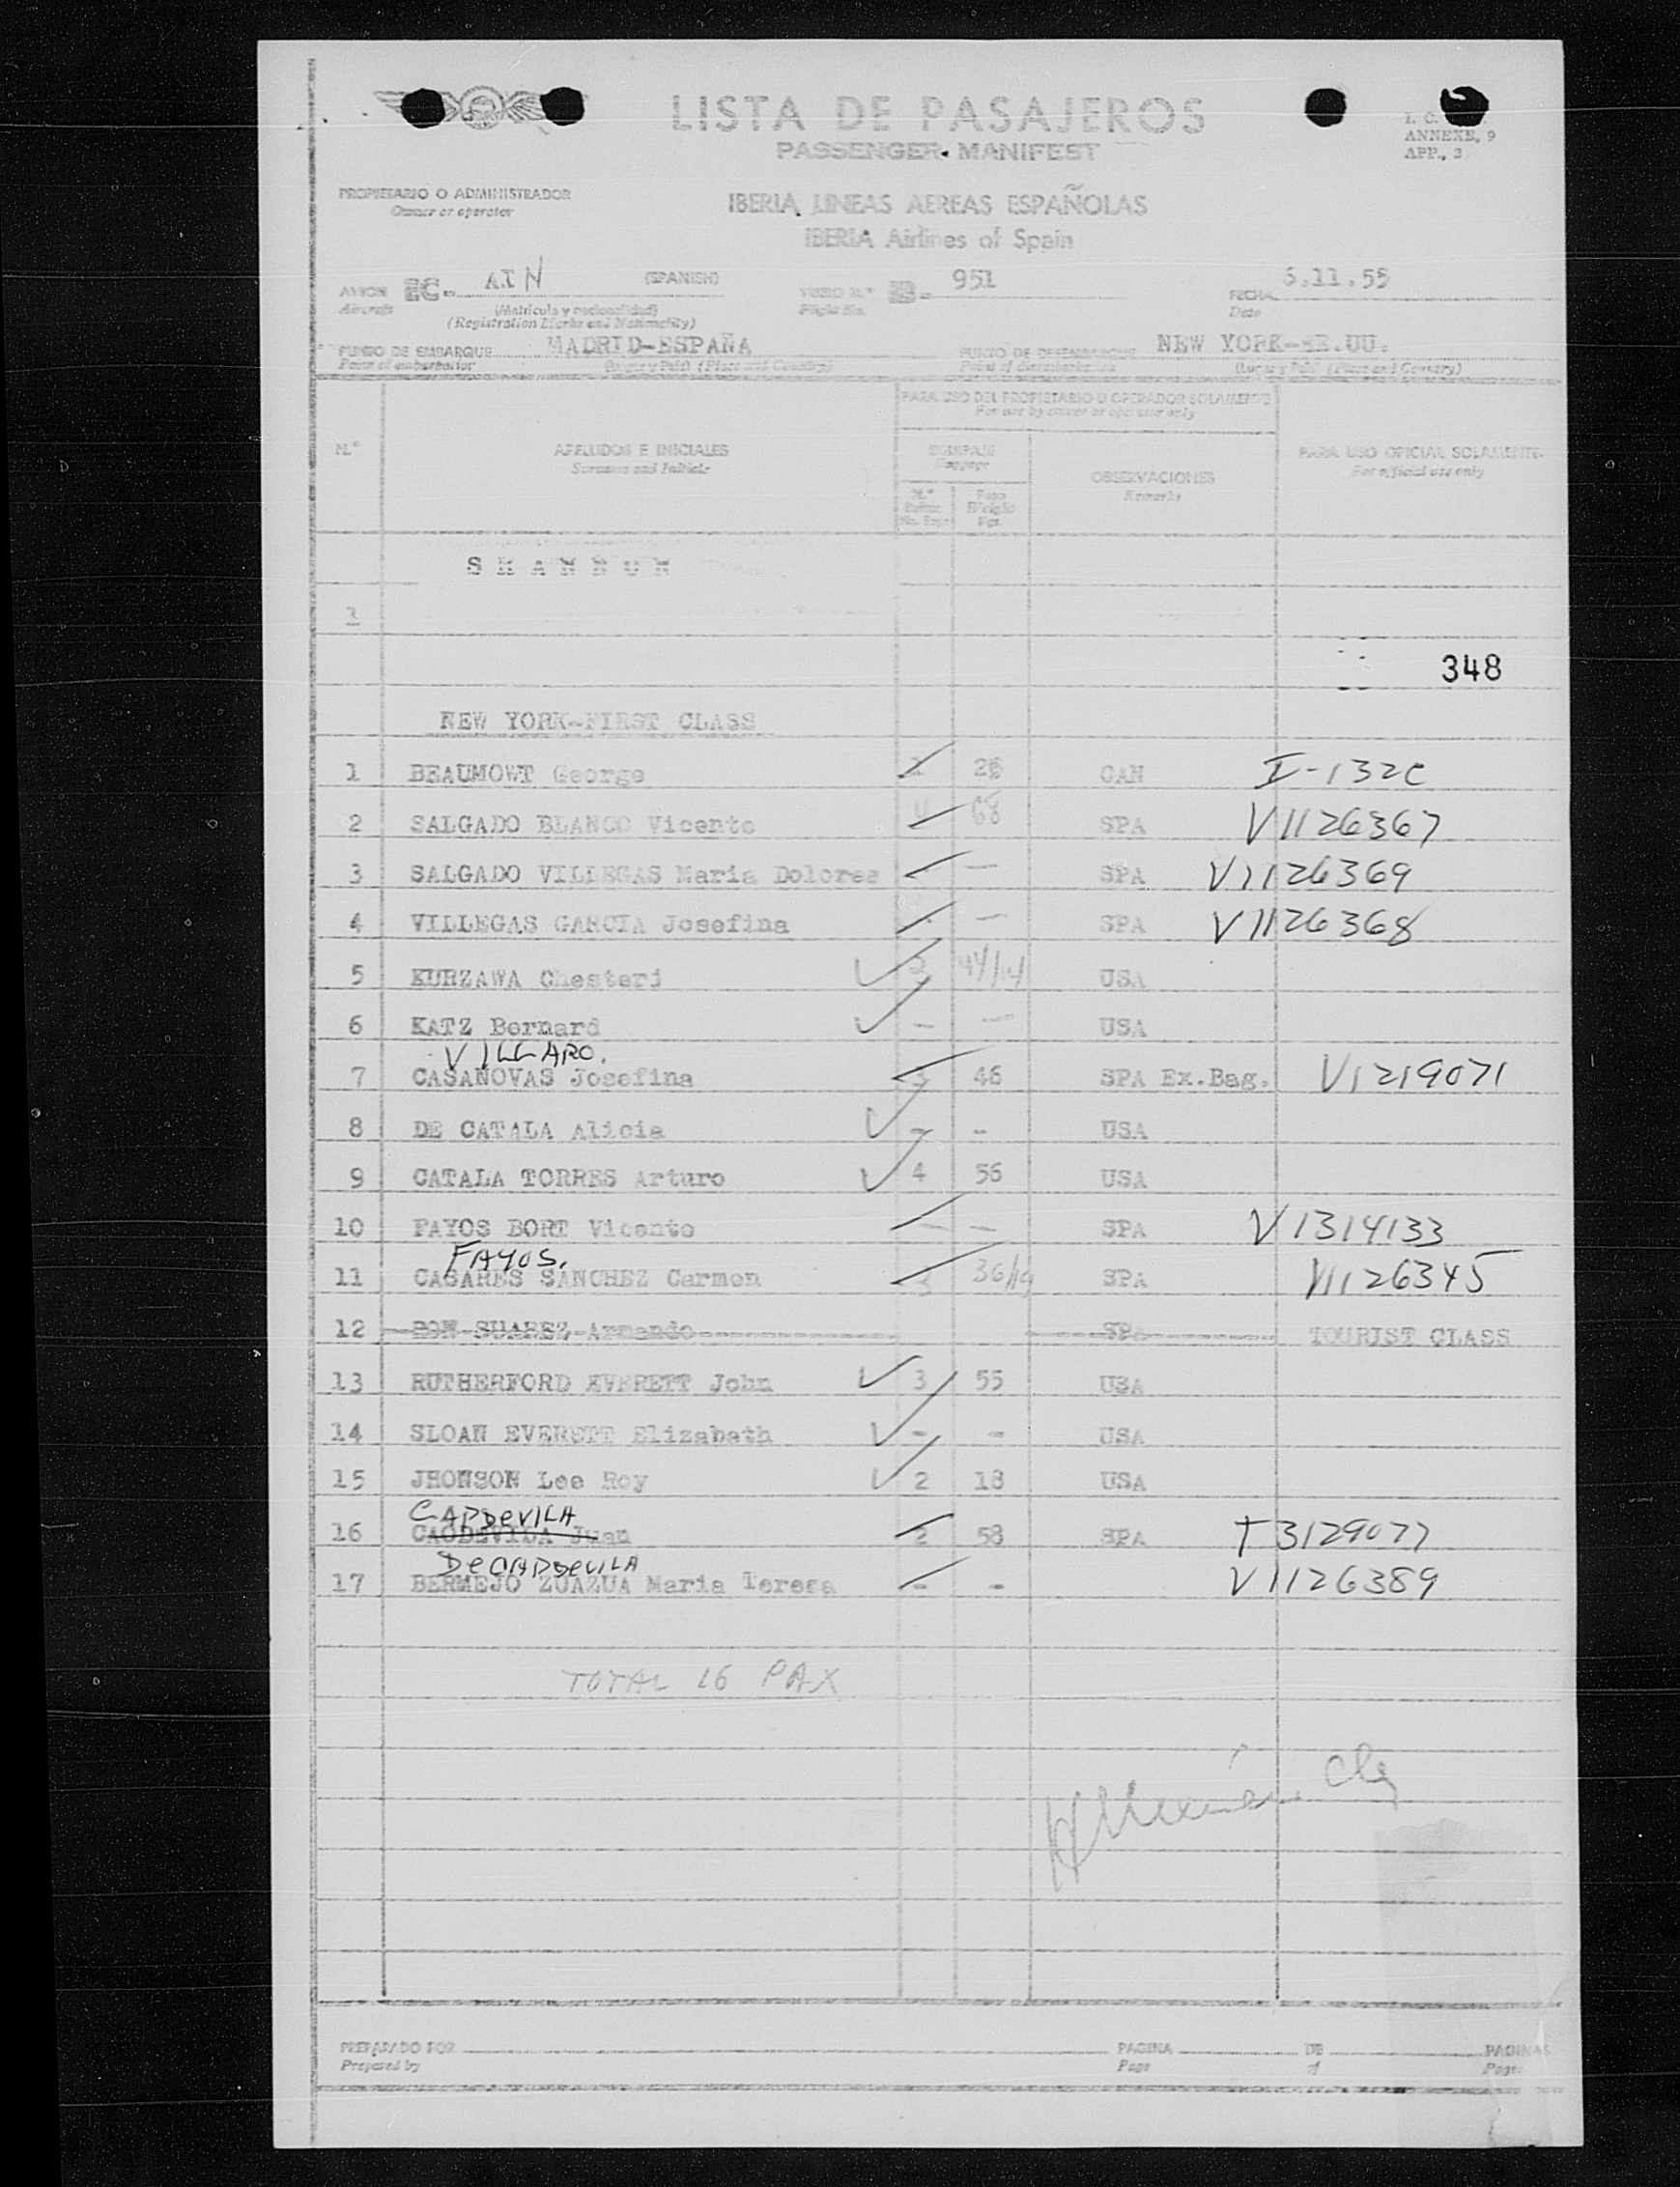 LISTA DE PASAJEROS
PASSENGER MANIFEST
ANNEXE, 9
APP., 3
PROPIETARIO O ADMINISTRADOR
Owner or operator
IBERIA LINEAS AEREAS ESPAÑOLAS
IBERIA Airlines of Spain
AVION EC- AIN (SPANISH) 951 6.11.55
Aircraft (Matricula y nacionalidad) Flight No. FECHA Date
(Registration Marks and Nationality)
PUNTO DE EMBARQUE MADRID-ESPAÑA PUNTO DE DESEMBARQUE NEW YORK-EE.UU.
Point of embarkation (Lugar y País) (Place and Country) (Lugar y País) (Place and Country)
PARA USO DEL PROPIETARIO U OPERADOR SOLAMENTE
For use by owner or operator only
N.° APELLIDOS E INICIALES PARA USO OFICIAL SOLAMENTE
Surname and Initials For official use only
OBSERVACIONES
Remarks
Peso
Weight
SHANNON
1
348
NEW YORK-FIRST CLASS
1 BEAUMONT George 1 25 CAN I-132C
2 SALGADO BLANCO Vicente 4 68 SPA V1126367
3 SALGADO VILLEGAS Maria Dolores - — SPA V1126369
4 VILLEGAS GARCIA Josefina - — SPA V1126368
5 KURZAWA Chesterj 2 44/14 USA
6 KATZ Bernard — — USA
VILLARO.
7 CASANOVAS Josefina 3 46 SPA Ex.Bag. V1219071
8 DE CATALA Alicia - -- USA
9 CATALA TORRES Arturo 4 56 USA
10 FAYOS BORT Vicente — — SPA V1314133
FAYOS.
11 CASARES SANCHEZ Carmen 3 36/19 SPA V1126345
12 RON SUAREZ Armando SPA TOURIST CLASS
13 RUTHERFORD EVERETT John 3 55 USA
14 SLOAN EVERETT Elizabeth - - USA
15 JHONSON Lee Roy 2 18 USA
CAPDEVILA
16 CAODEVILA Juan 2 58 SPA T3129077
DE CAPDEVILA
17 BERMEJO ZUAZUA Maria Teresa - - V1126389
TOTAL 16 PAX
PREPARADO POR PAGINA DE PAGINAS
Prepared by Page of Page